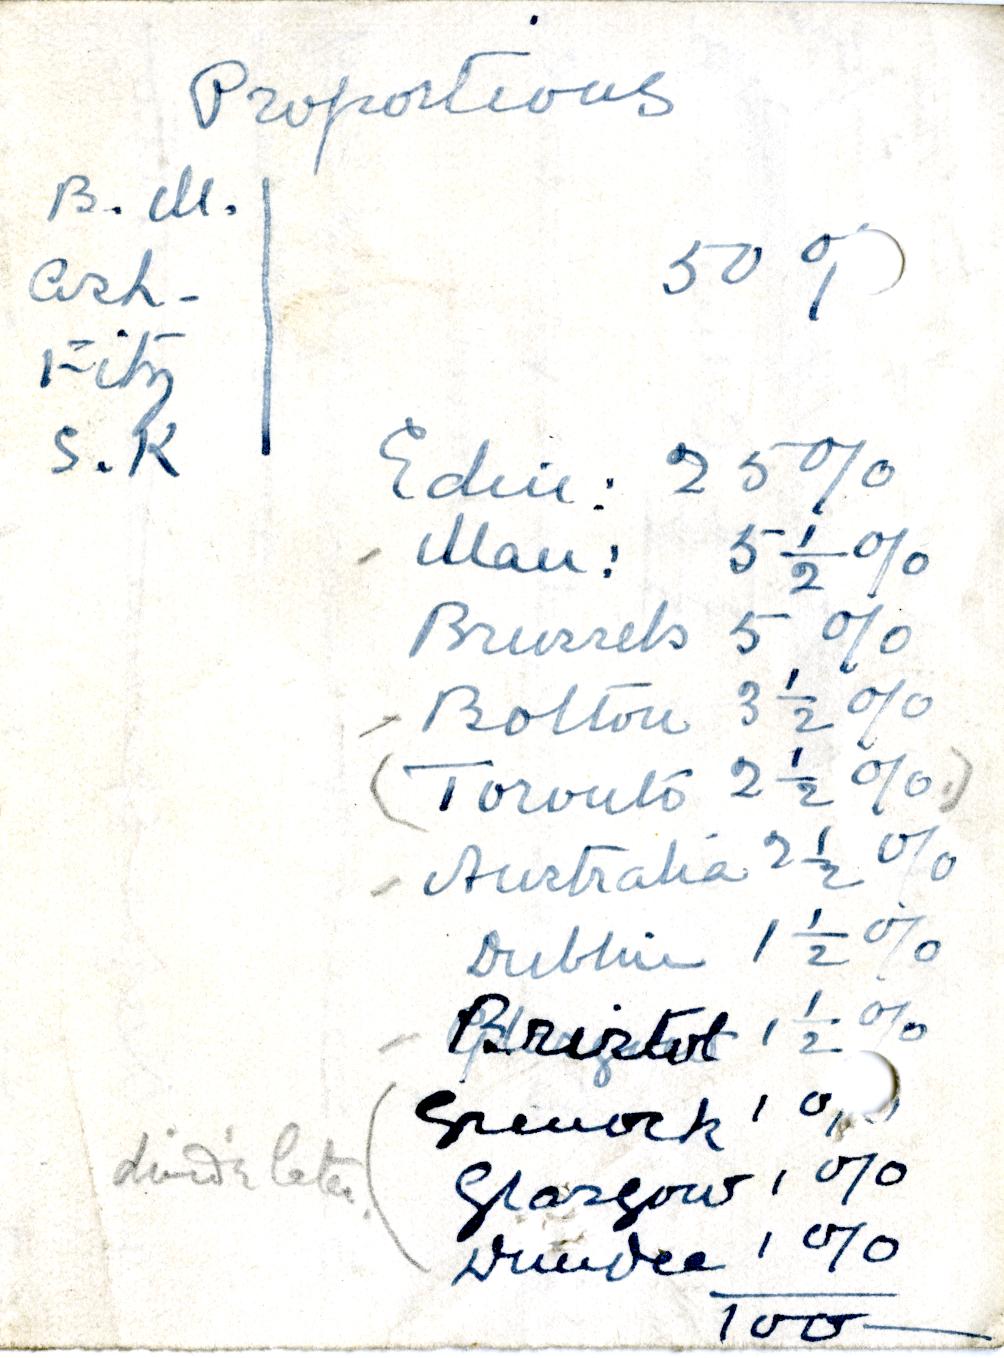 Proportions
B. M.
Ash -
50 %
Fitz
S. K
Edin: 25 %
- Man: 5 ½ %
Brussels 5 %
- Bolton 3 ½ %
(Toronto 2 ½ %.)
- Australia 2 ½ %
Dublin 1 ½ %
- Bristol 1 ½ %
Grenock 1 %
Glasgow 1 %
Dundee 1 %
100